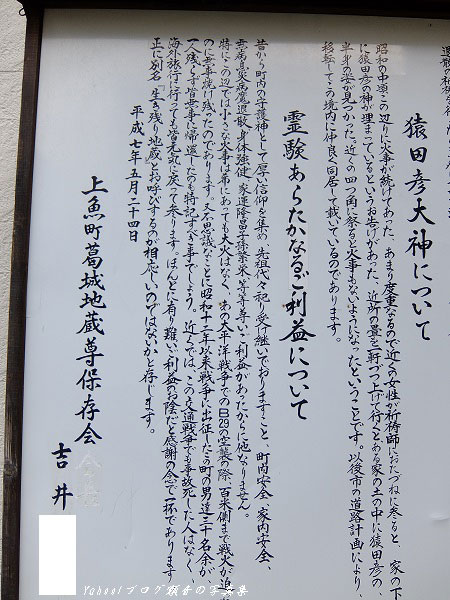 猿田彦大神について
昭和の中頃この辺りに火事が続けてあった。あまり度重なるので近くの女性が祈祷師におたづねに参ると、家の下
に猿田彦の神が埋まっているというお告げがあった。近所の畳を一軒づつ上げて行くと、ある家の土の中に猿田彦の、
半身の姿が見つかった。近くの四つ角に祭ると火事もないようになったということです。以後市の道路計画により、
移転してこの境内に仲良く同居して戴いているのであります。
霊験あらたかなるご利益について
昔から町内の守護神として厚い信仰を集め、先祖代々祀り受け継いでおりますこと、町内安全、家内安全、
無病息災病魔退散、身体強健、家運隆昌、子孫繁栄、等々尊いご利益があったからに他なりません。
特にこの辺では小さな火事は希にあっても大火はなく、あの太平洋戦争でのB29の空襲の際、百米側まで戦火が迫
のに無事焼け残ったのであります。又不思議なことに昭和十二年以来戦争へ出征したこの町の男達三十名余が、
一人残らず皆無事に帰還したのも特記すべき事でしょう。近くでは、この交通戦争でも事故死した人はなく、
海外旅行に行っても皆元気に戻って参ります。ほんとに有り難いご利益のお陰だと感謝の念で一杯であります
正に別名『生き残り地蔵』とお呼びするのが相応しいのではないかと存じます。
平成七年五月二十四日
上魚町葛城地蔵尊保存会
吉井
Yahoo!ブログ
の写真集